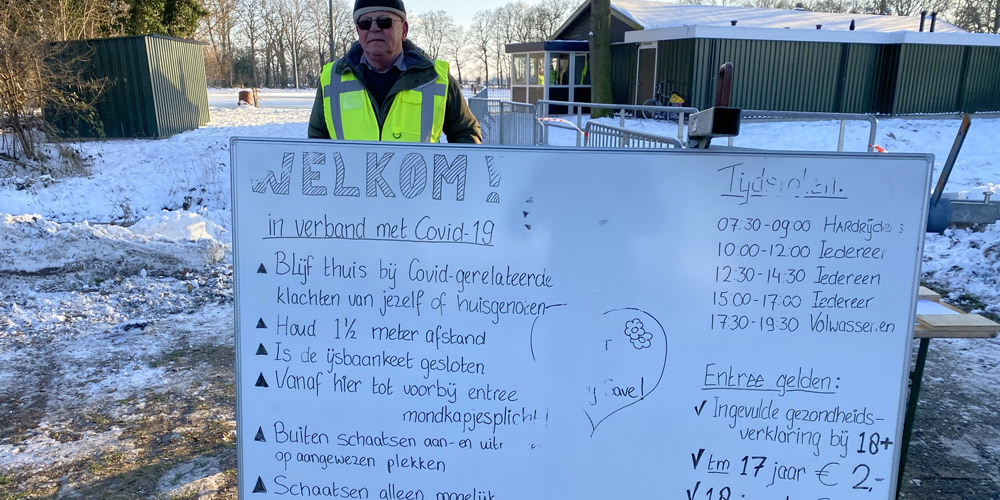 WELKOM!
in verband met Covid-19
Blijf thuis bij Covid-gerelateerde
klachten van jezelf of huisgenoten
Houd 1½ meter afstand
Is de ijsbaankeet gesloten
Vanaf hier tot voorbij entree
mondkapjesplicht!
Buiten schaatsen aan- en uitr
op aangewezen plekken
Schaatsen alleen mogelijk
Save!
Tijdsloten.
07:30-09:00 HARDRIJDERS
10:00-12:00 Iedereer
12:30-14:30 Iedereen
15:00-17:00 Iedereer
17:30-19:30 Volwassenen
Entree gelden:
✓ Ingevulde gezondheids-
verklaring bij 18+
✓ tm 17 jaar € 2,-
✓ 18